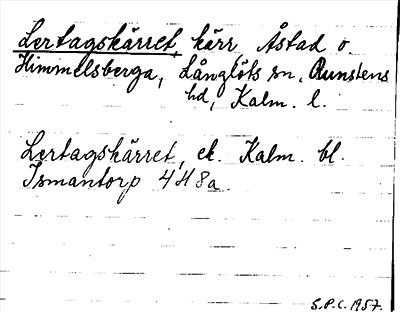 Lertagskärret, kärr, Åstad o.
Himmelsberga, Långlöts sn, Runstens
hd, Kalm. l.
Lertagskärret, ek. Kalm. bl.
Ismantorp 4H8a.
S.P.C. 1957.